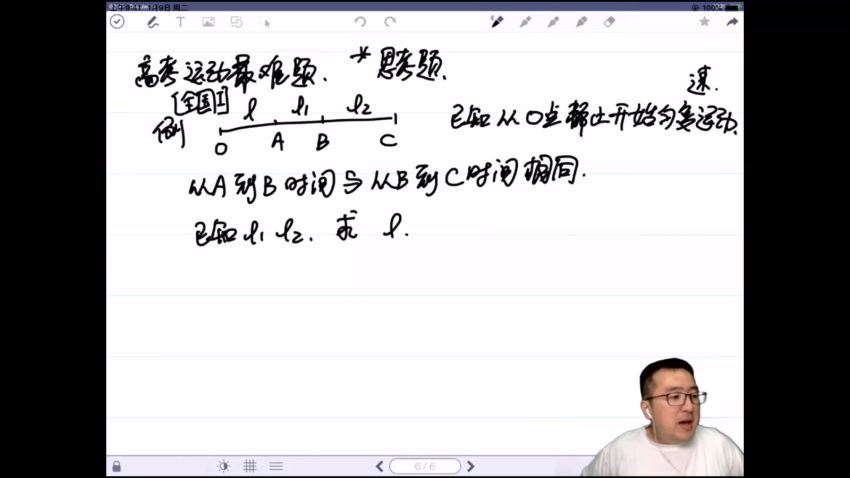 1月9日 周二
100%
高考运动最难题. *思考题.
[全国I]
例 l l₁ l₂
O A B C
已知从O点静止开始匀变速运动.
从A到B时间与从B到C时间相同.
已知 l₁ l₂. 求 l.
6/6